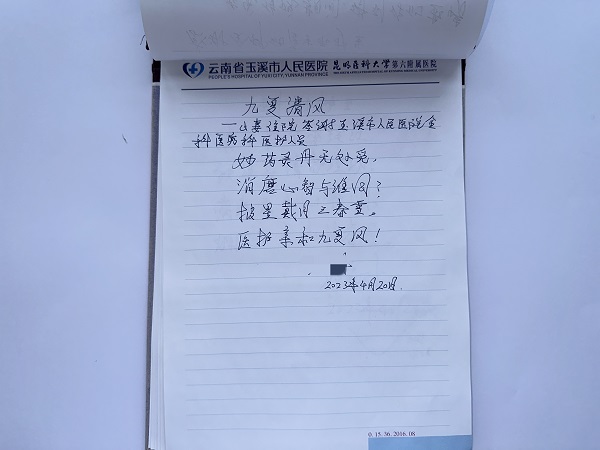 云南省玉溪市人民医院 昆明医科大学第六附属医院
PEOPLE'S HOSPITAL OF YUXI CITY, YUNNAN PROVINCE
九夏清风
—山妻住院答谢玉溪市人民医院全
科医防科医护人员
妙药灵丹无处觅,
消磨心智与谁同?
披星戴月三春
医护亲和九夏风!
2023年4月20日.
0.15.36.2016.08